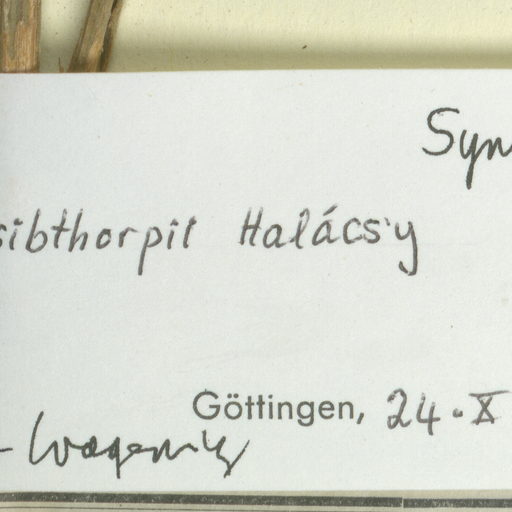 Syn
sibthorpii Halácsy
Göttingen, 24. X
- Wagenitz